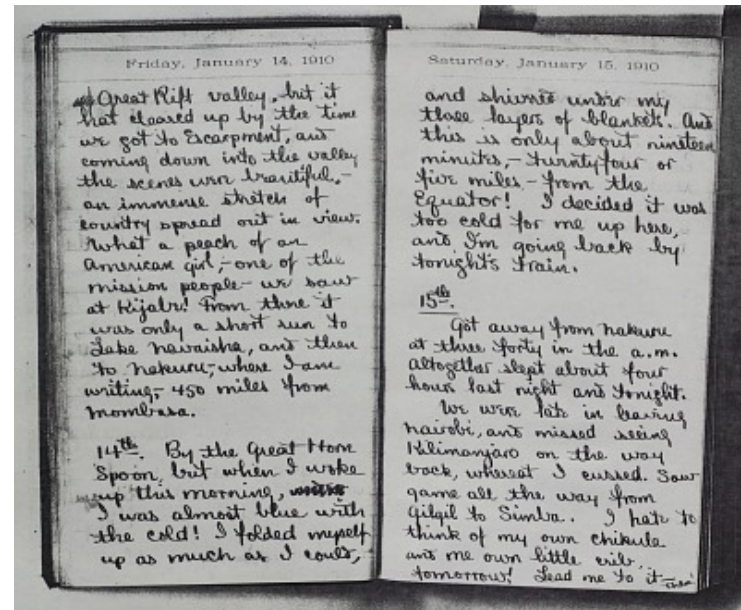 Friday, January 14, 1910
Great Rift valley, but it
had cleared up by the time
we got to Escarpment, and
coming down into the valley
the scenes were beautiful, –
an immense stretch of
country spread out in view.
What a peach of an
American girl, – one of the
mission people – we saw
at Kijabe! From there it
was only a short run to
Lake Navaisha, and then
to Nakuru, where I am
writing, – 450 miles from
Mombasa.
14th. By the Great Horn
Spoon, but when I woke
up this morning,
I was almost blue with
the cold! I folded myself
up as much as I could,
Saturday, January 15, 1910
and shivered under my
three layers of blankets. And
this is only about nineteen
minutes, – twenty four or
five miles – from the
Equator! I decided it was
too cold for me up here,
and I'm going back by
tonight's train.
15th.
Got away from Nakuru
at three forty in the a.m.
Altogether slept about four
hours last night and tonight.
We were late in leaving
Nairobi, and missed seeing
Kilimanjaro on the way
back, whereat I cussed. Saw
game all the way from
Gilgil to Simba. I hate to
think of my own chikule
and me own little crib,
tomorrow! Lead me to it –